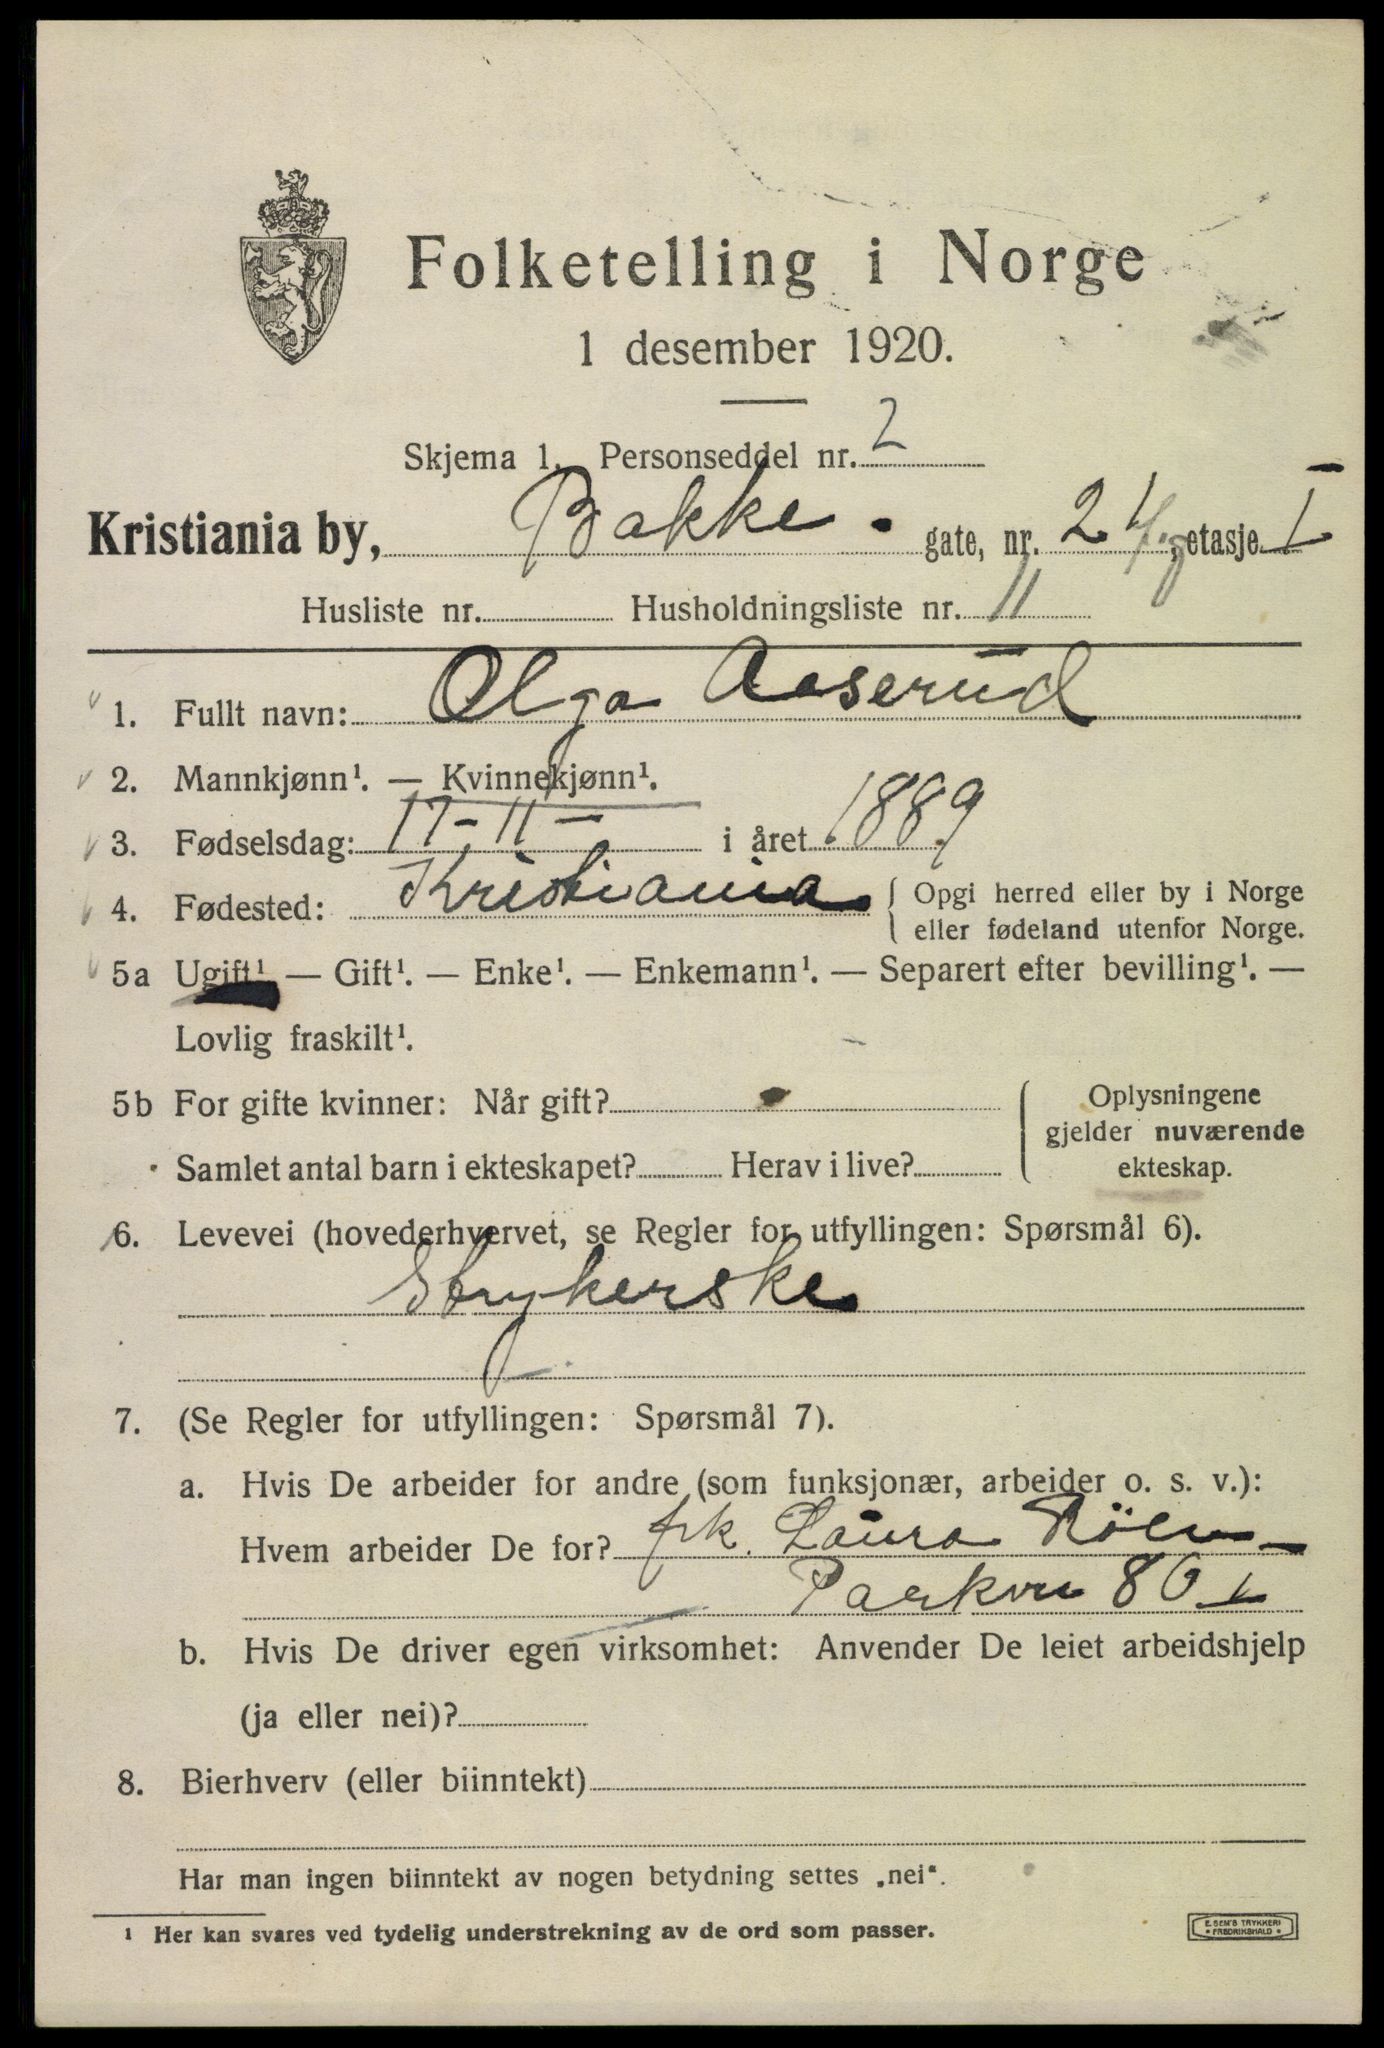 Folketelling i Norge
1 desember 1920.
Skjema 1. Personseddel nr. 2
Kristiania by, Bakke gate, nr. 24 g, etasje I
Husliste nr. Husholdningsliste nr. 11
1. Fullt navn: Olga Aaserud
2. Mannkjønn¹. — Kvinnekjønn¹.
3. Fødselsdag: 17-11- i året 1889
4. Fødested: Kristiania { Opgi herred eller by i Norge
eller fødeland utenfor Norge.
5a Ugift¹ — Gift¹. — Enke¹. — Enkemann¹. — Separert efter bevilling¹. —
Lovlig fraskilt¹.
5b For gifte kvinner: Når gift? Oplysningene
gjelder nuværende
Samlet antal barn i ekteskapet? Herav i live? ekteskap.
6. Levevei (hovederhvervet, se Regler for utfyllingen: Spørsmål 6).
Strykerske
7. (Se Regler for utfyllingen: Spørsmål 7).
a. Hvis De arbeider for andre (som funksjonær, arbeider o. s. v.):
Hvem arbeider De for? frk. Laura Röen
Parkvn 80 I
b. Hvis De driver egen virksomhet: Anvender De leiet arbeidshjelp
(ja eller nei)?
8. Bierhverv (eller biinntekt)
Har man ingen biinntekt av nogen betydning settes „nei“.
¹ Her kan svares ved tydelig understrekning av de ord som passer.
E. SEM'S TRYKKERI
FREDRIKSHALD